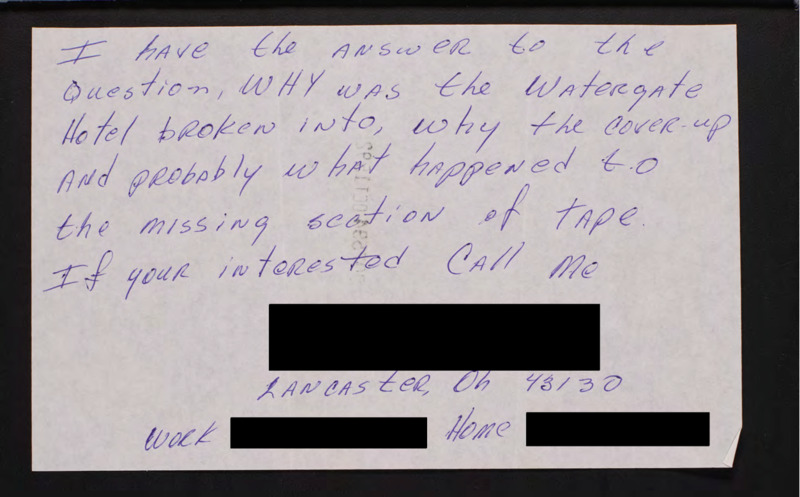 I have the answer to the
Question, WHY was the Watergate
Hotel broken into, why the cover-up
And probably what happened to
the missing section of tape.
If your interested Call Me
Lancaster, Oh 43130
Work
Home